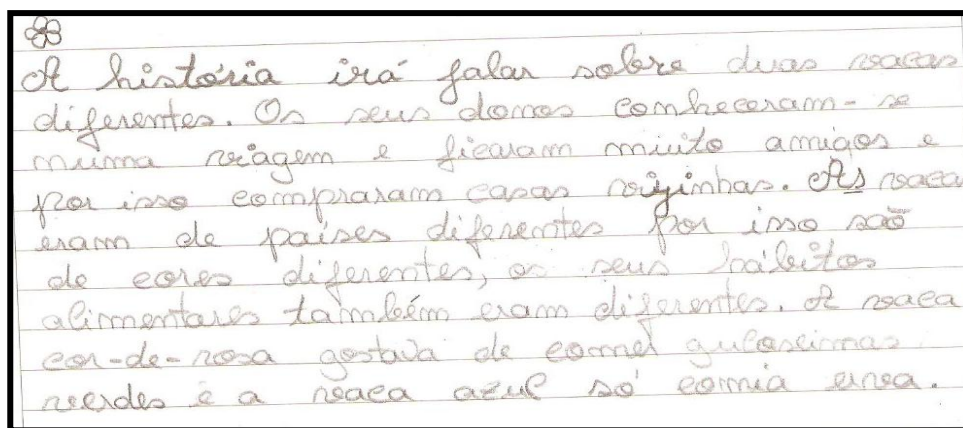 A história irá falar sobre duas vacas
diferentes. Os seus donos conheceram-se
numa viagem e ficaram muito amigos e
por isso compraram casas vizinhas. As vaca
eram de países diferentes por isso são
de cores diferentes, os seus hábitos
alimentares também eram diferentes. A vaca
cor-de-rosa gostava de comer guloseimas
verdes e a vaca azul só comia erva.